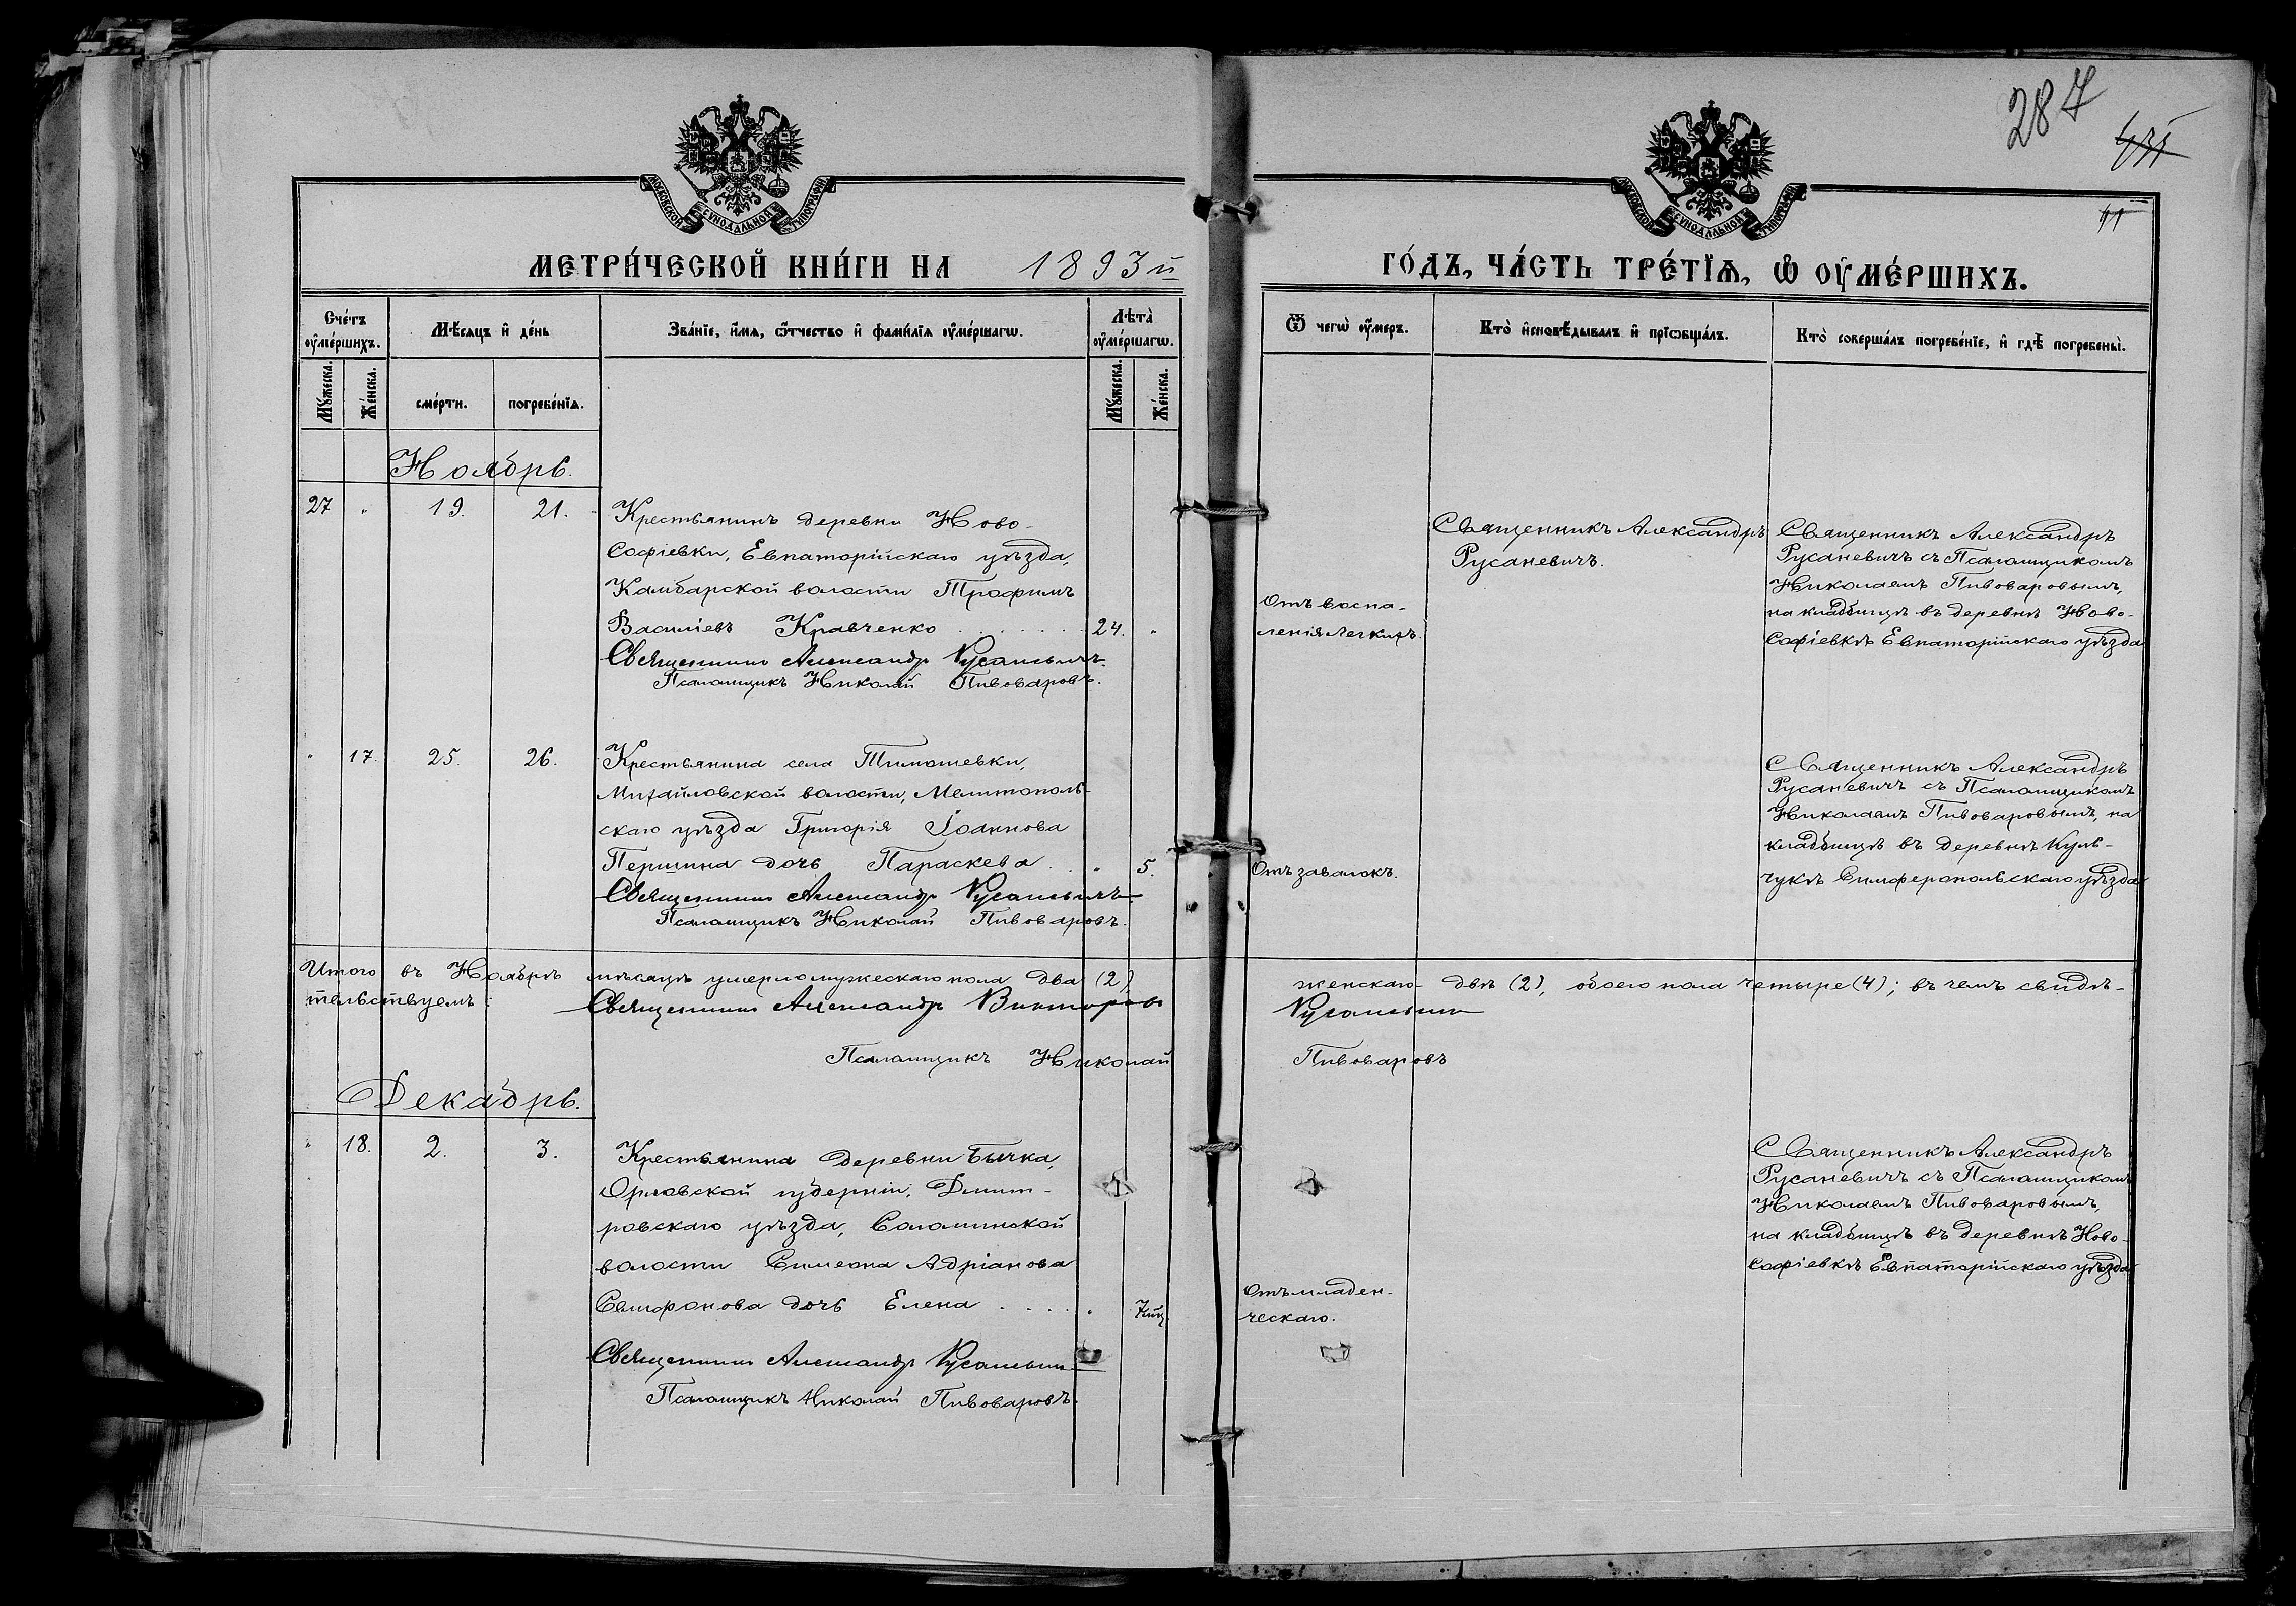 287
МОСКОВСКОЙ СѴНОДАЛЬНОЙ ТИПОГРАФІИ
МОСКОВСКОЙ СѴНОДАЛЬНОЙ ТИПОГРАФІИ
МЕТРИ́ЧЕСКОЙ КНИ́ГИ НА 1893й
ГО́ДЪ, ЧА́СТЬ ТРЕ́ТЇѦ, Ѽ ОУ҆МЕ́РШИХЪ.
Сче́тъ оу҆ме́ршихъ.
Мꙋ́жеска.
Же́нска.
Мѣ́сяцъ и҆ де́нь
сме́рти.
погребе́нїѧ.
Зва́нїе, и҆́мѧ, ѻ҆́тчество и҆ фами́лїѧ оу҆ме́ршагѡ.
Лѣ́та оу҆ме́ршагѡ.
Мꙋ́жеска.
Же́нска.
Ѿ чегѡ̀ оу҆́меръ.
Кто̀ и҆сповѣ́дывалъ и҆ прїѡбща́лъ.
Кто̀ соверша́лъ погребе́нїе, и҆ гдѣ̀ погребены̀.
Ноябрь.
27 " 19. 21.
Крестьянинъ деревни Ново-
Софіевки, Евпаторійскаго уѣзда,
Камбарской волости Трофимъ
Василіевъ Кравченко . . . . . . . 24. "
Священникъ Александръ Русаневичъ.
Псаломщикъ Николай Пивоваровъ.
Отъ воспа-
ленія легкихъ.
Священникъ Александръ
Русаневичъ.
Священникъ Александръ
Русаневичъ съ Псаломщикомъ
Николаемъ Пивоваровымъ,
на кладбищѣ въ деревнѣ Ново-
Софіевкѣ Евпаторійскаго уѣзда
" 17. 25. 26.
Крестьянина села Тимошевки,
Михайловской волости, Мелитополь-
скаго уѣзда Григорія Іоаннова
Першина дочь Параскева . . " 5.
Священникъ Александръ Русаневичъ
Псаломщикъ Николай Пивоваровъ.
Отъ завалокъ.
Священникъ Александръ
Русаневичъ съ Псаломщикомъ
Николаемъ Пивоваровымъ, на
кладбищѣ въ деревнѣ Куль-
чукѣ Симферопольскаго уѣзда
Итого въ Ноябрѣ мѣсяцѣ умерло мужескаго пола два (2) женскаго двѣ (2), обоего пола четыре (4); въ чемъ свидѣ-
тельствуемъ: Священникъ Александръ Викторовъ Русаневичъ
Псаломщикъ Николай Пивоваровъ
Декабрь.
" 18. 2. 3.
Крестьянина деревни Бычка,
Орловской губерніи, Дмит-
ровскаго уѣзда, Соломинской
волости Симеона Адріанова
Самфонова дочь Елена . . . . " 7 мц
Священникъ Александръ Русаневичъ
Псаломщикъ Николай Пивоваровъ.
Отъ младен-
ческаго.
Священникъ Александръ
Русаневичъ съ Псаломщикомъ
Николаемъ Пивоваровымъ,
на кладбищѣ въ деревнѣ Ново-
Софіевкѣ Евпаторійскаго уѣзда